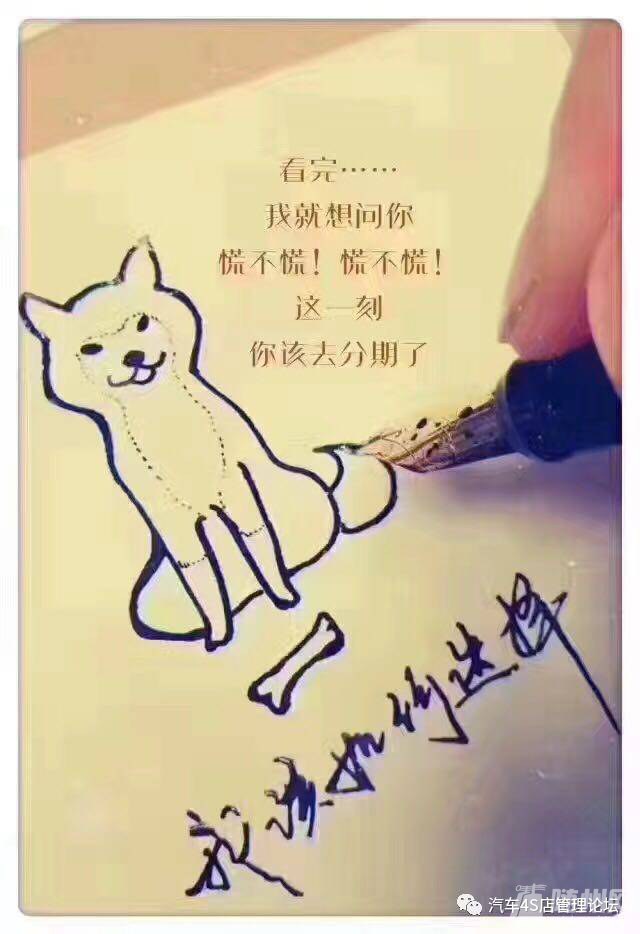 看完……
我就想问你
慌不慌！慌不慌！
这一刻
你该去分期了
我该如何选择
汽车4S店管理论坛
随州网